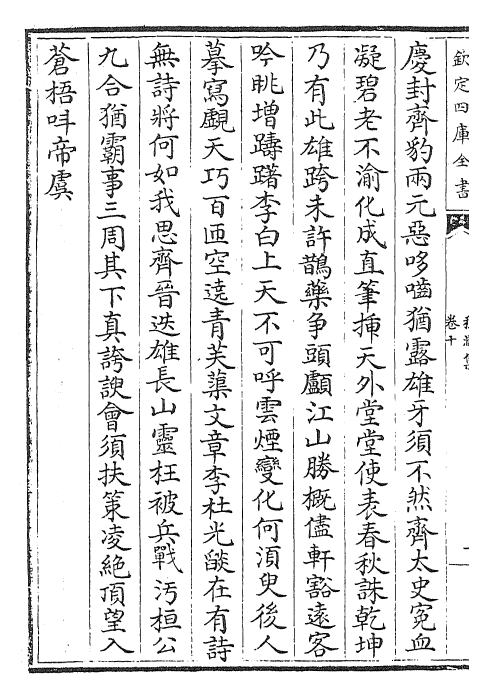 欽定四庫全書
卷十
慶封齊豹兩元惡哆嚙猶露雄牙須不然齊太史寃血
凝碧老不渝化成直筆揷天外堂堂使表春秋誅乾坤
乃有此雄跨未許鵲藥争頭顱江山勝概儘軒豁逺客
吟眺增躊躇李白上天不可呼雲煙變化何湏臾後人
摹寫覷天巧百匝空遶青芙蕖文章李杜光燄在有詩
無詩將何如我思齊晉迭雄長山靈枉被兵戰汚桓公
九合猶霸事三周其下真誇諛會須扶策凌絶頂望入
蒼梧呌帝虞